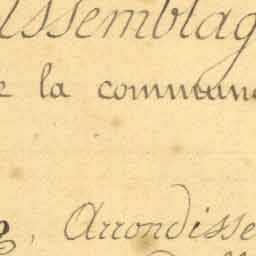 Assemblag
e la commune
, Arrondisse